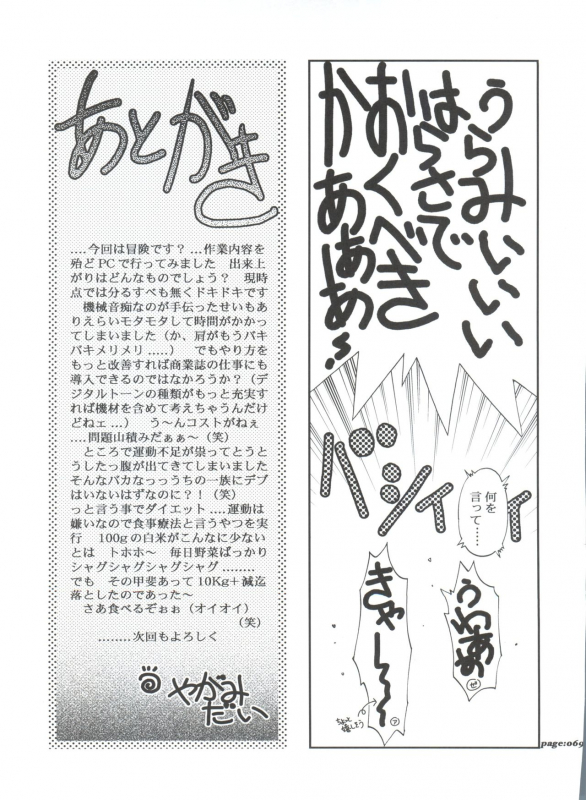 うらみぃいいい
はらさで
おくべき
かあぁあ！！
バシィィ
何を
言って…
うわああ
ゼ
きゃー〜〜
ア
ちょっと
嬉しそう
あとがき
‥‥今回は冒険です？…作業内容を
殆どPCで行ってみました　出来上
がりはどんなものでしょう？　現時
点では分るすべも無くドキドキです
機械音痴なのが手伝ったせいもあ
りえらいモタモタして時間がかかっ
てしまいました（か、肩がもうバキ
バキメリメリ‥‥‥）　でもやり方を
もっと改善すれば商業誌の仕事にも
導入できるのではなかろうか？（デ
ジタルトーンの種類がもっと充実す
れば機材を含めて考えちゃうんだけ
どねェ…）　う〜んコストがねぇ
‥‥問題山積みだぁぁ〜（笑）
ところで運動不足が祟ってとうと
うしたっ腹が出てきてしまいました
そんなバカなっっうちの一族にデブ
はいないはずなのに？！（笑）
っと言う事でダイエット‥‥運動は
嫌いなので食事療法と言うやつを実
行　100gの白米がこんなに少ない
とは　トホホ〜　毎日野菜ばっかり
シャグシャグシャグシャグ‥‥‥‥
でも　その甲斐あって10Kg＋減迄
落としたのであった〜
さあ食べるぞぉぉ（オイオイ）
（笑）
‥‥‥‥次回もよろしく
やがみ
だい
page:069